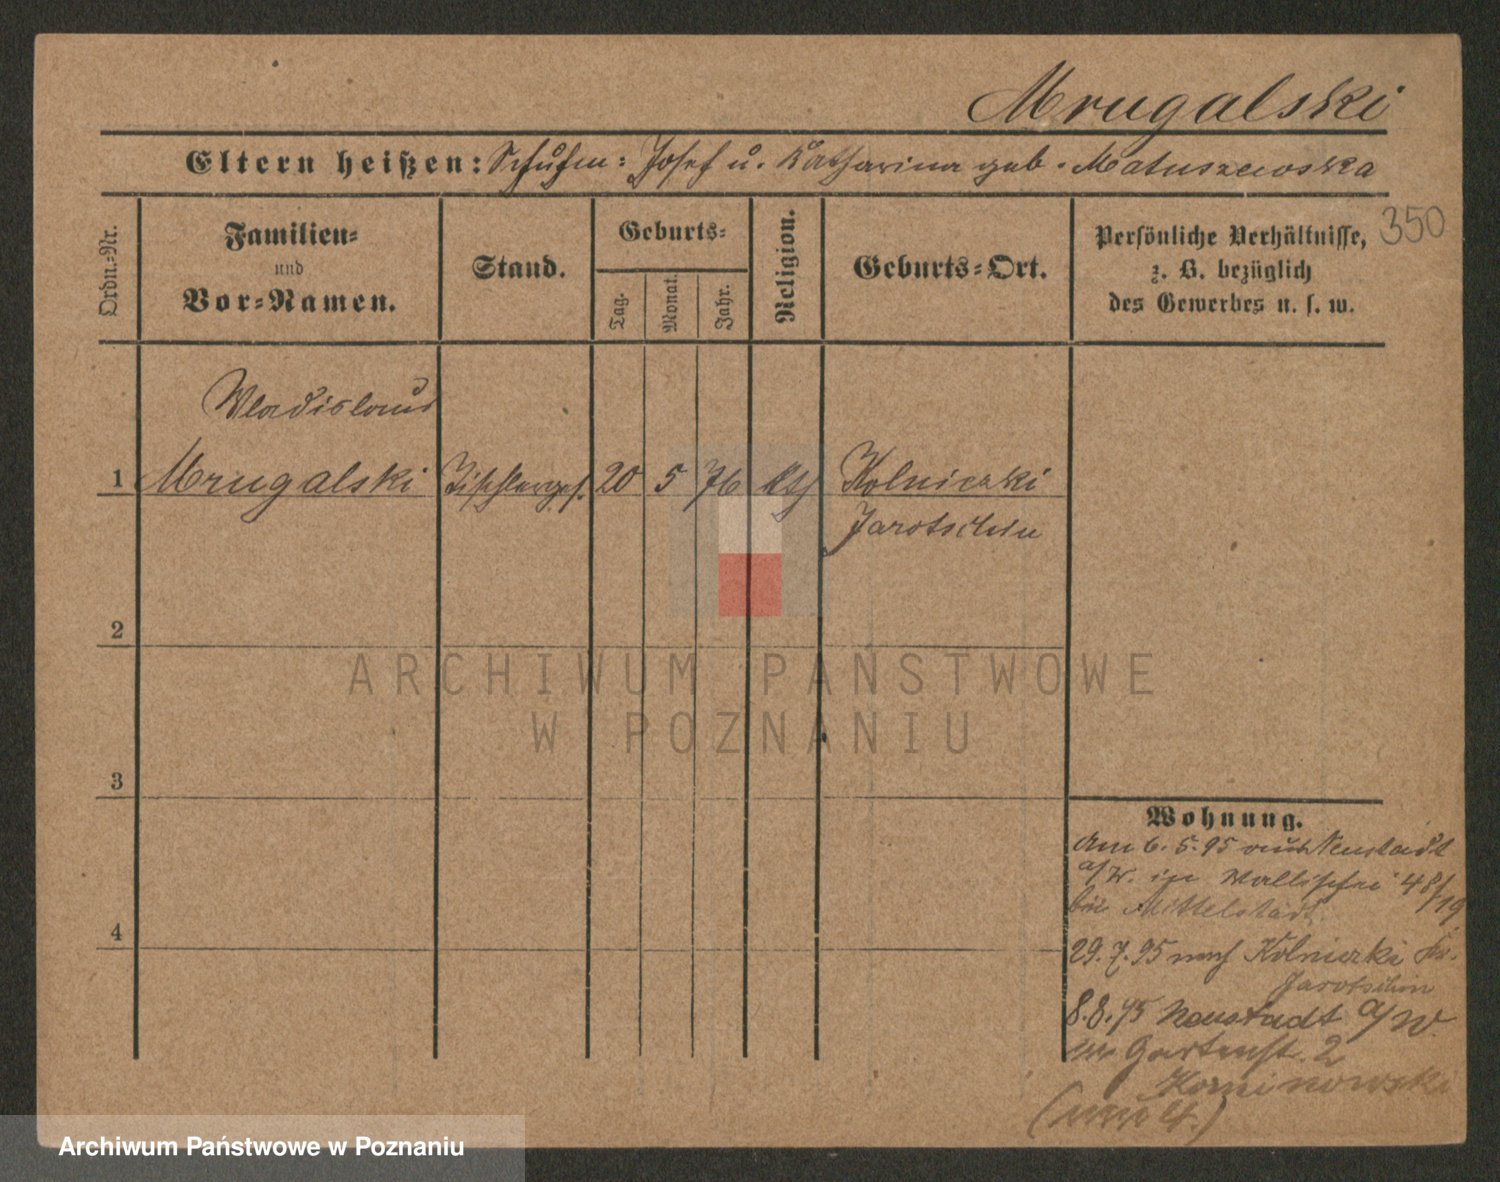 Mrugalski
Eltern heißen: Schuhm: Josef u. Katharina geb. Matuszewska
350
Ordn.-Nr.
Familien-
und
Vor-Namen.
Stand.
Geburts-
Tag.
Monat.
Jahr.
Religion.
Geburts-Ort.
Persönliche Verhältnisse,
z. B. bezüglich
des Gewerbes u. s. w.
Wladislaus
1 Mrugalski Tischlerges. 20 5 76 kth Kolniczki
Jarotschin
2
3
4
ARCHIWUM PAŃSTWOWE
W POZNANIU
Wohnung.
Am 6. 5. 95 aus Neustadt
a/W. in Wallischei 48/19
bei Mittelstädt
29. 7. 95 nach Kolniczki Kr.
Jarotschin
8. 8. 95 Neustadt a/W.
Gartenst. 2
Archiwum Państwowe w Poznaniu